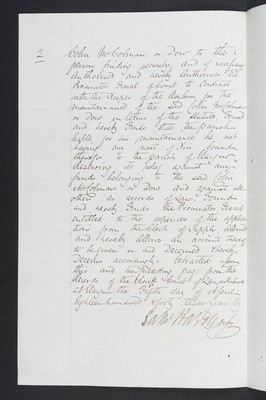 2
Colin McColman or Dow to the
person finding security, and if necessary
Authorised and hereby Authorises the
Procurator Fiscal of Court to Contract
with the Keeper of the Asylum for the
maintainance of the said Colin McColman
or Dow in terms of the Statute, Found
and hereby Finds that the parish
liable for his maintenance he not
having any
therefor is the parish of Glasgow
reserving relief against any
funds belonging to the said Colin
McColman or Dow and against all
others as accords of Law. Found
and hereby Finds the Procurator Fiscal
entitled to the expences of the applica
tion from the Clerk of Supply, allowed
and hereby allows an account thereof
to be given in and Decerned & hereby
Decerns accordingly. Extracted upon
this and the preceding page from the
Records of the Sheriff Court of Lanarkshire
at Glasgow the Fifth day of April
Eighteen hundred & forty three years By